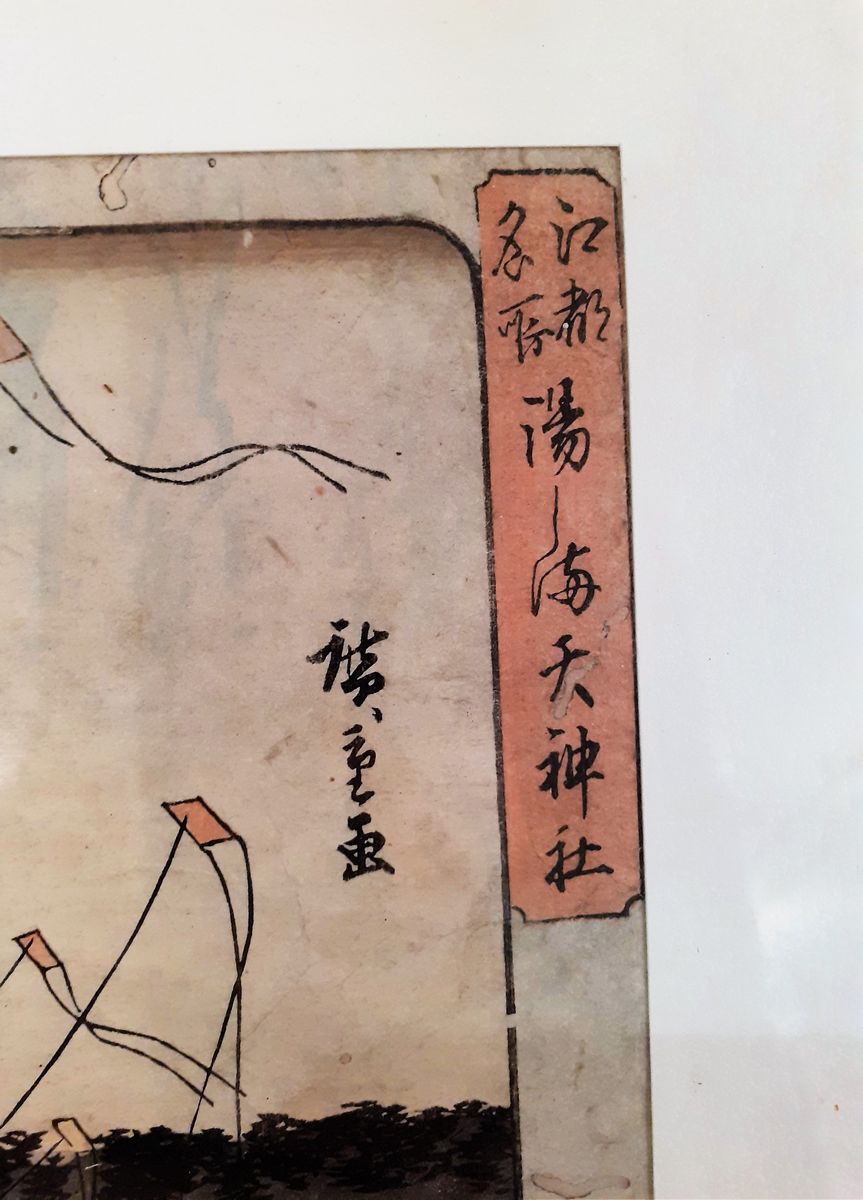 江都
名所
湯し満天神社
廣重画